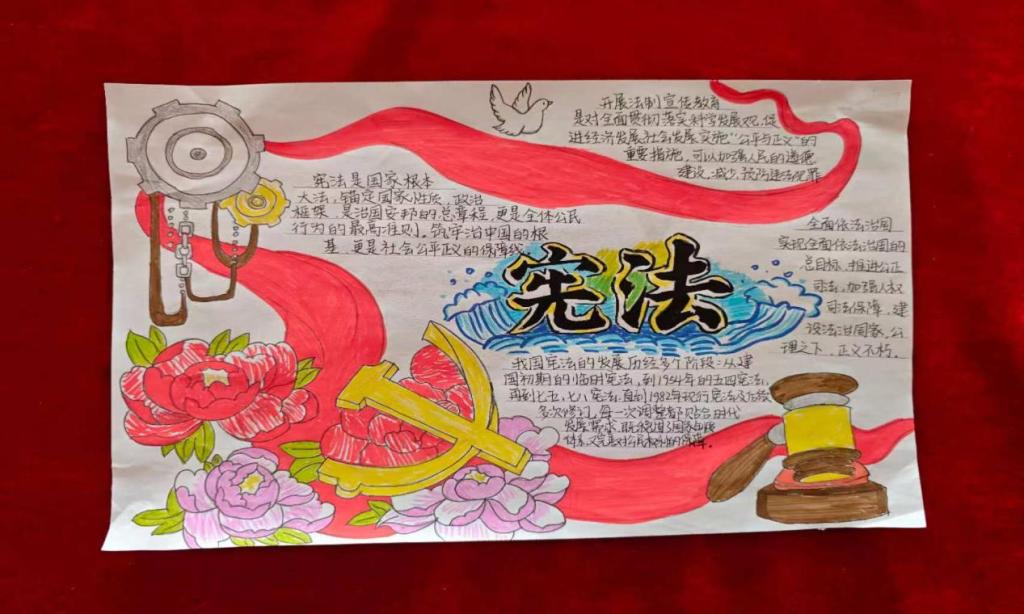 开展法制宣传教育
是对全面贯彻落实科学发展观,促
进经济发展社会发展实施“公平与正义”的
重要措施,可以加强人民的道德
建设,减少,预防违法犯罪
宪法是国家根本
大法,锚定国家性质,政治
框架,是治国安邦的总章程,更是全体公民
行为的最高准则。筑牢治中国的根
基,更是社会公平正义的保障线。
全面依法治国
实现全面依法治国的
总目标,推进公正
司法,加强人权
司法保障,建
设法治国家,公
理之下,正义不朽。
宪法
我国宪法的发展历经多个阶段:从建
国初期的临时宪法,到1954年的五四宪法,
再到七五,七八宪法,直到1982年现行宪法及
多次修订,每一次调整都贴合时代
发展需求,既
体系,又